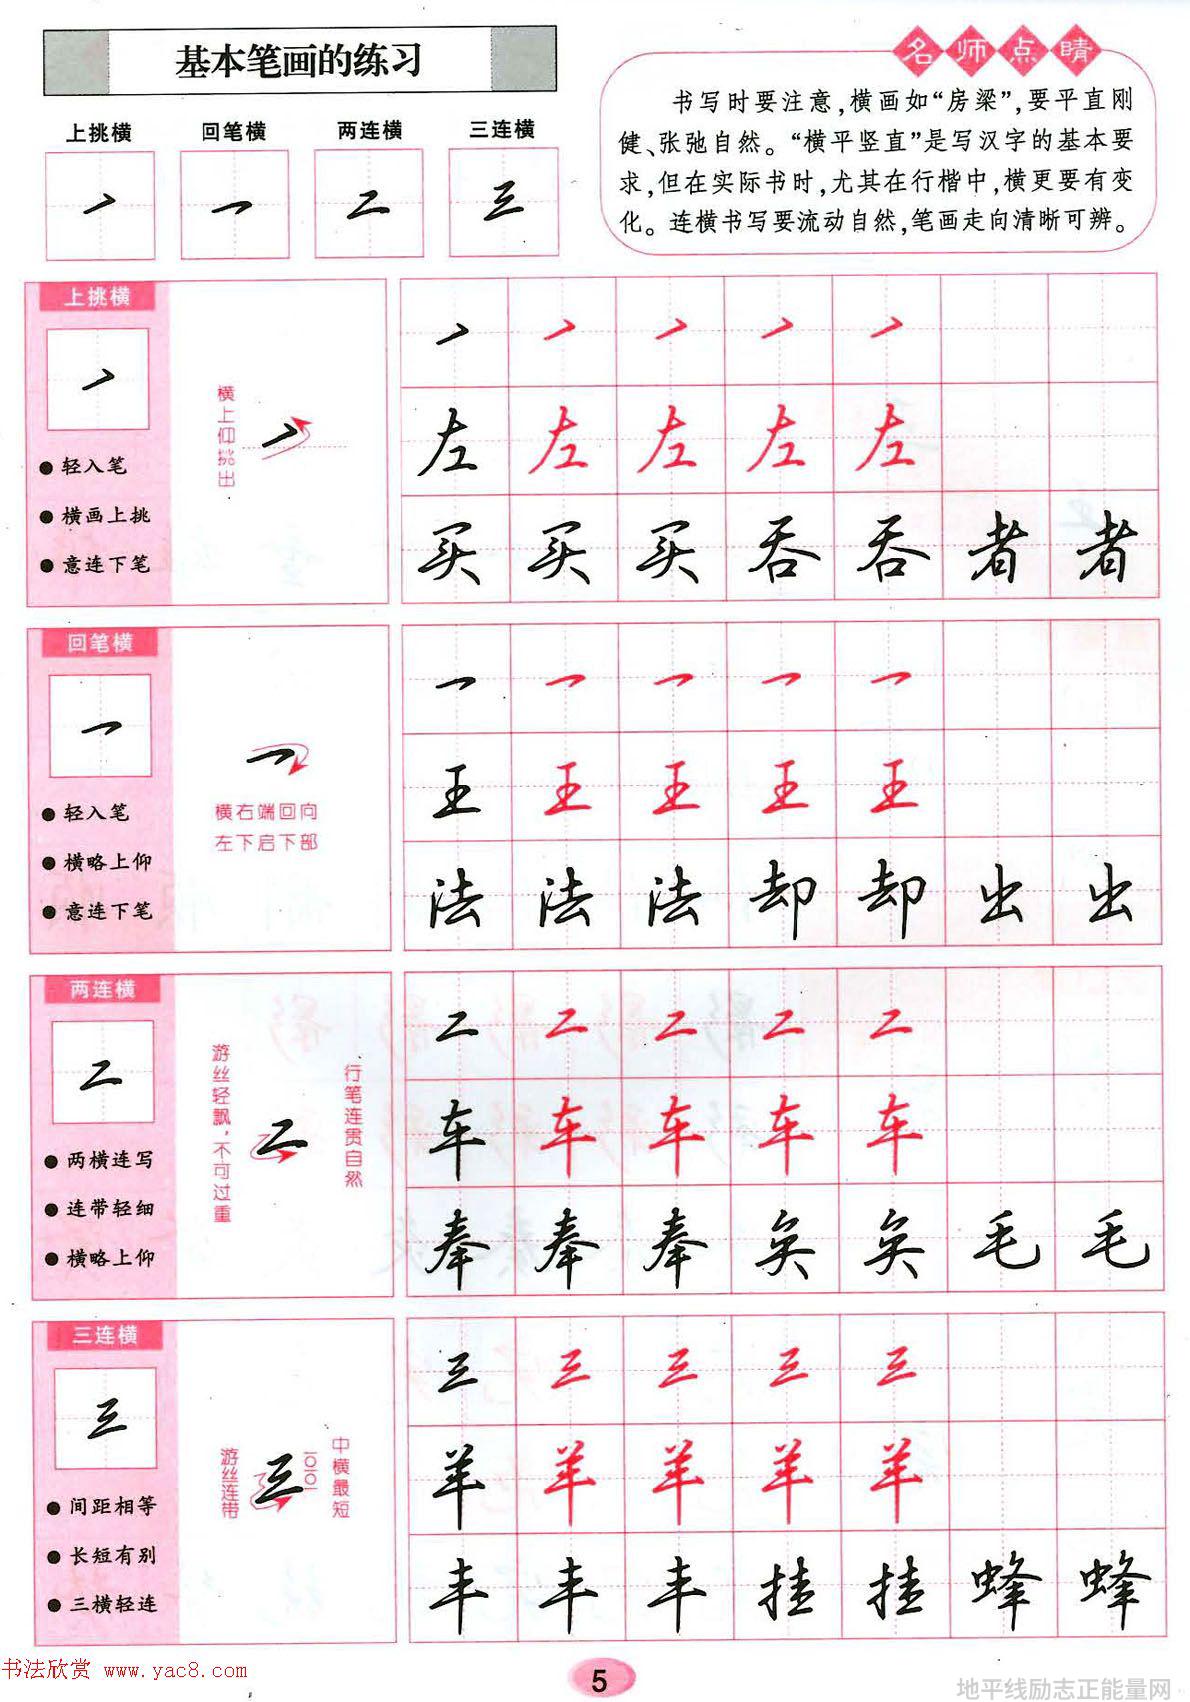 基本笔画的练习
上挑横 回笔横 两连横 三连横
名师点睛
书写时要注意，横画如“房梁”，要平直刚
健、张弛自然。“横平竖直”是写汉字的基本要
求，但在实际书时，尤其在行楷中，横更要有变
化。连横书写要流动自然，笔画走向清晰可辨。
上挑横
●轻入笔
●横画上挑
●意连下笔
横上仰挑出
左 左 左 左 左
买 买 买 吞 吞 者 者
回笔横
●轻入笔
●横略上仰
●意连下笔
横右端回向
左下启下部
一 一 一 一 一
王 王 王 王 王
法 法 法 却 却 出 出
两连横
●两横连写
●连带轻细
●横略上仰
游丝轻飘，不可过重
行笔连贯自然
二 二 二 二 二
车 车 车 车 车
奉 奉 奉 奂 奂 毛 毛
三连横
●间距相等
●长短有别
●三横轻连
游丝连带
中横最短
三 三 三 三 三
羊 羊 羊 羊 羊
丰 丰 丰 挂 挂 蜂 蜂
书法欣赏 www.yac8.com
5
地平线励志正能量网